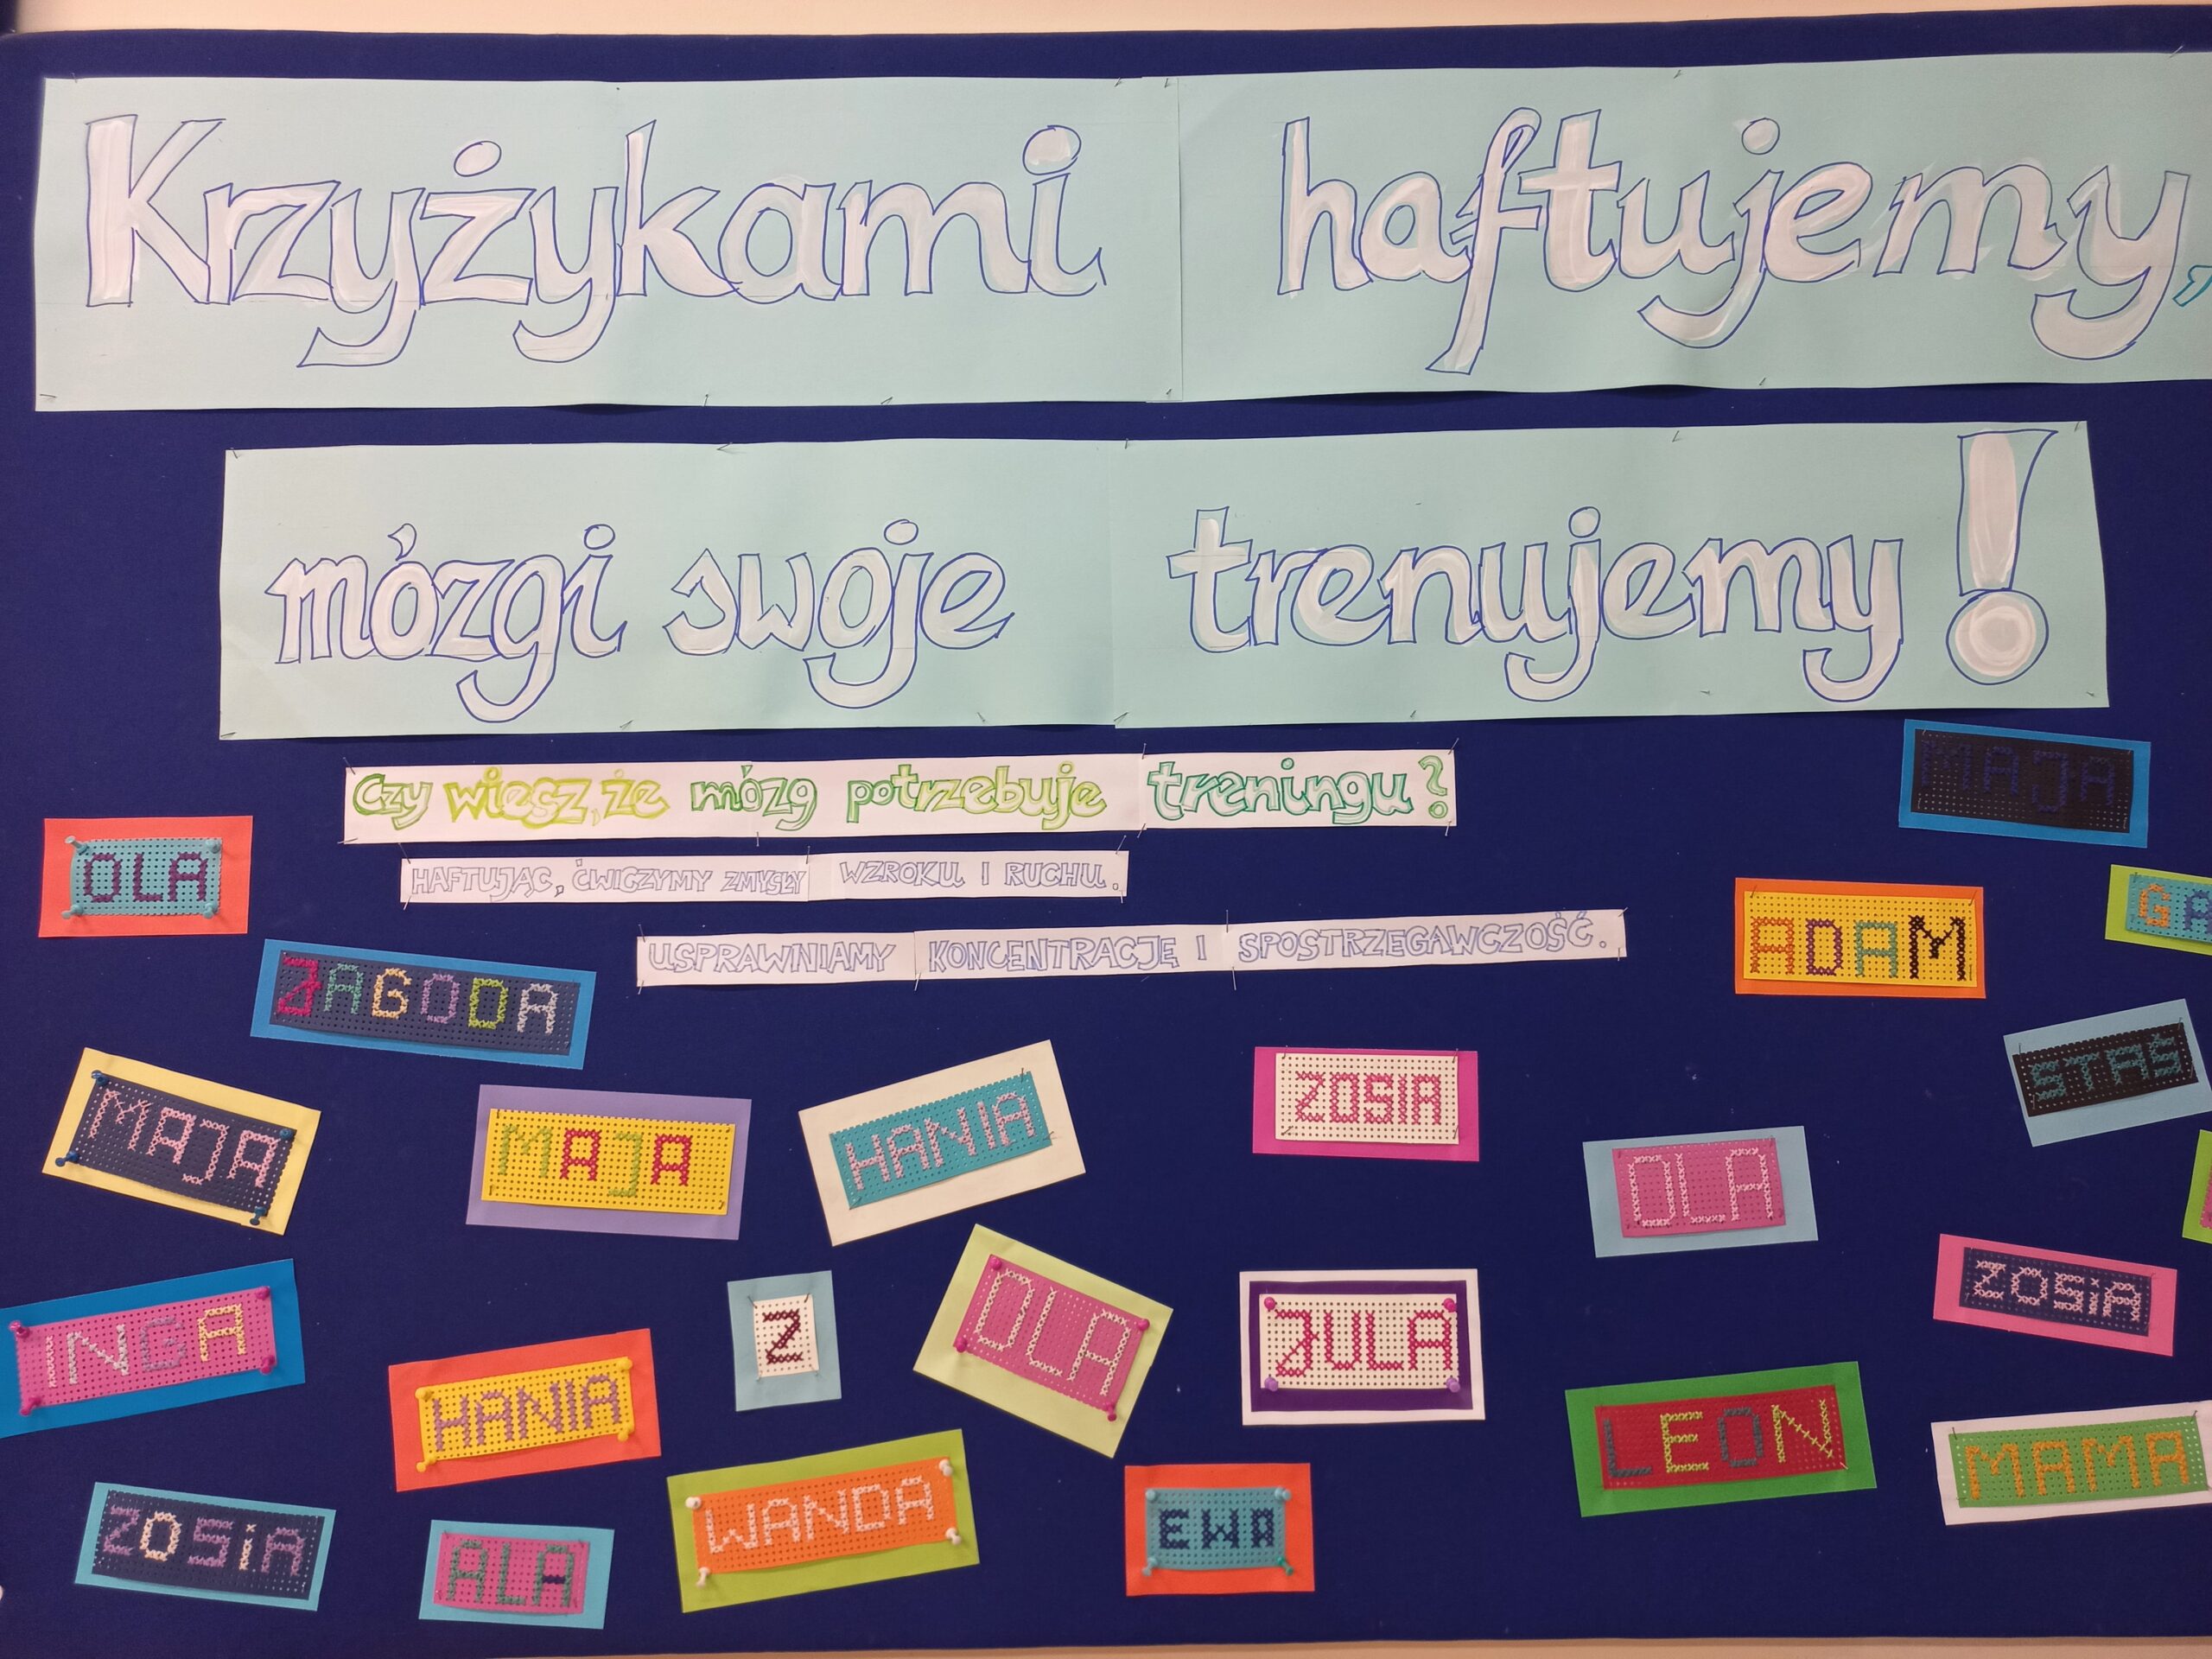 Krzyżykami haftujemy,
mózgi swoje trenujemy!
Czy wiesz, że mózg potrzebuje treningu?
HAFTUJĄC, ĆWICZYMY ZMYSŁY WZROKU I RUCHU.
USPRAWNIAMY KONCENTRACJĘ I SPOSTRZEGAWCZOŚĆ.
MAJA
OLA
ADAM
GA
JAGODA
STAŚ
MAJA
MAJA
HANIA
ZOSIA
OLA
ZOSiA
INGA
HANIA
Z
OLA
JULA
LEON
MAMA
ZOSiA
ALA
WANDA
EWA